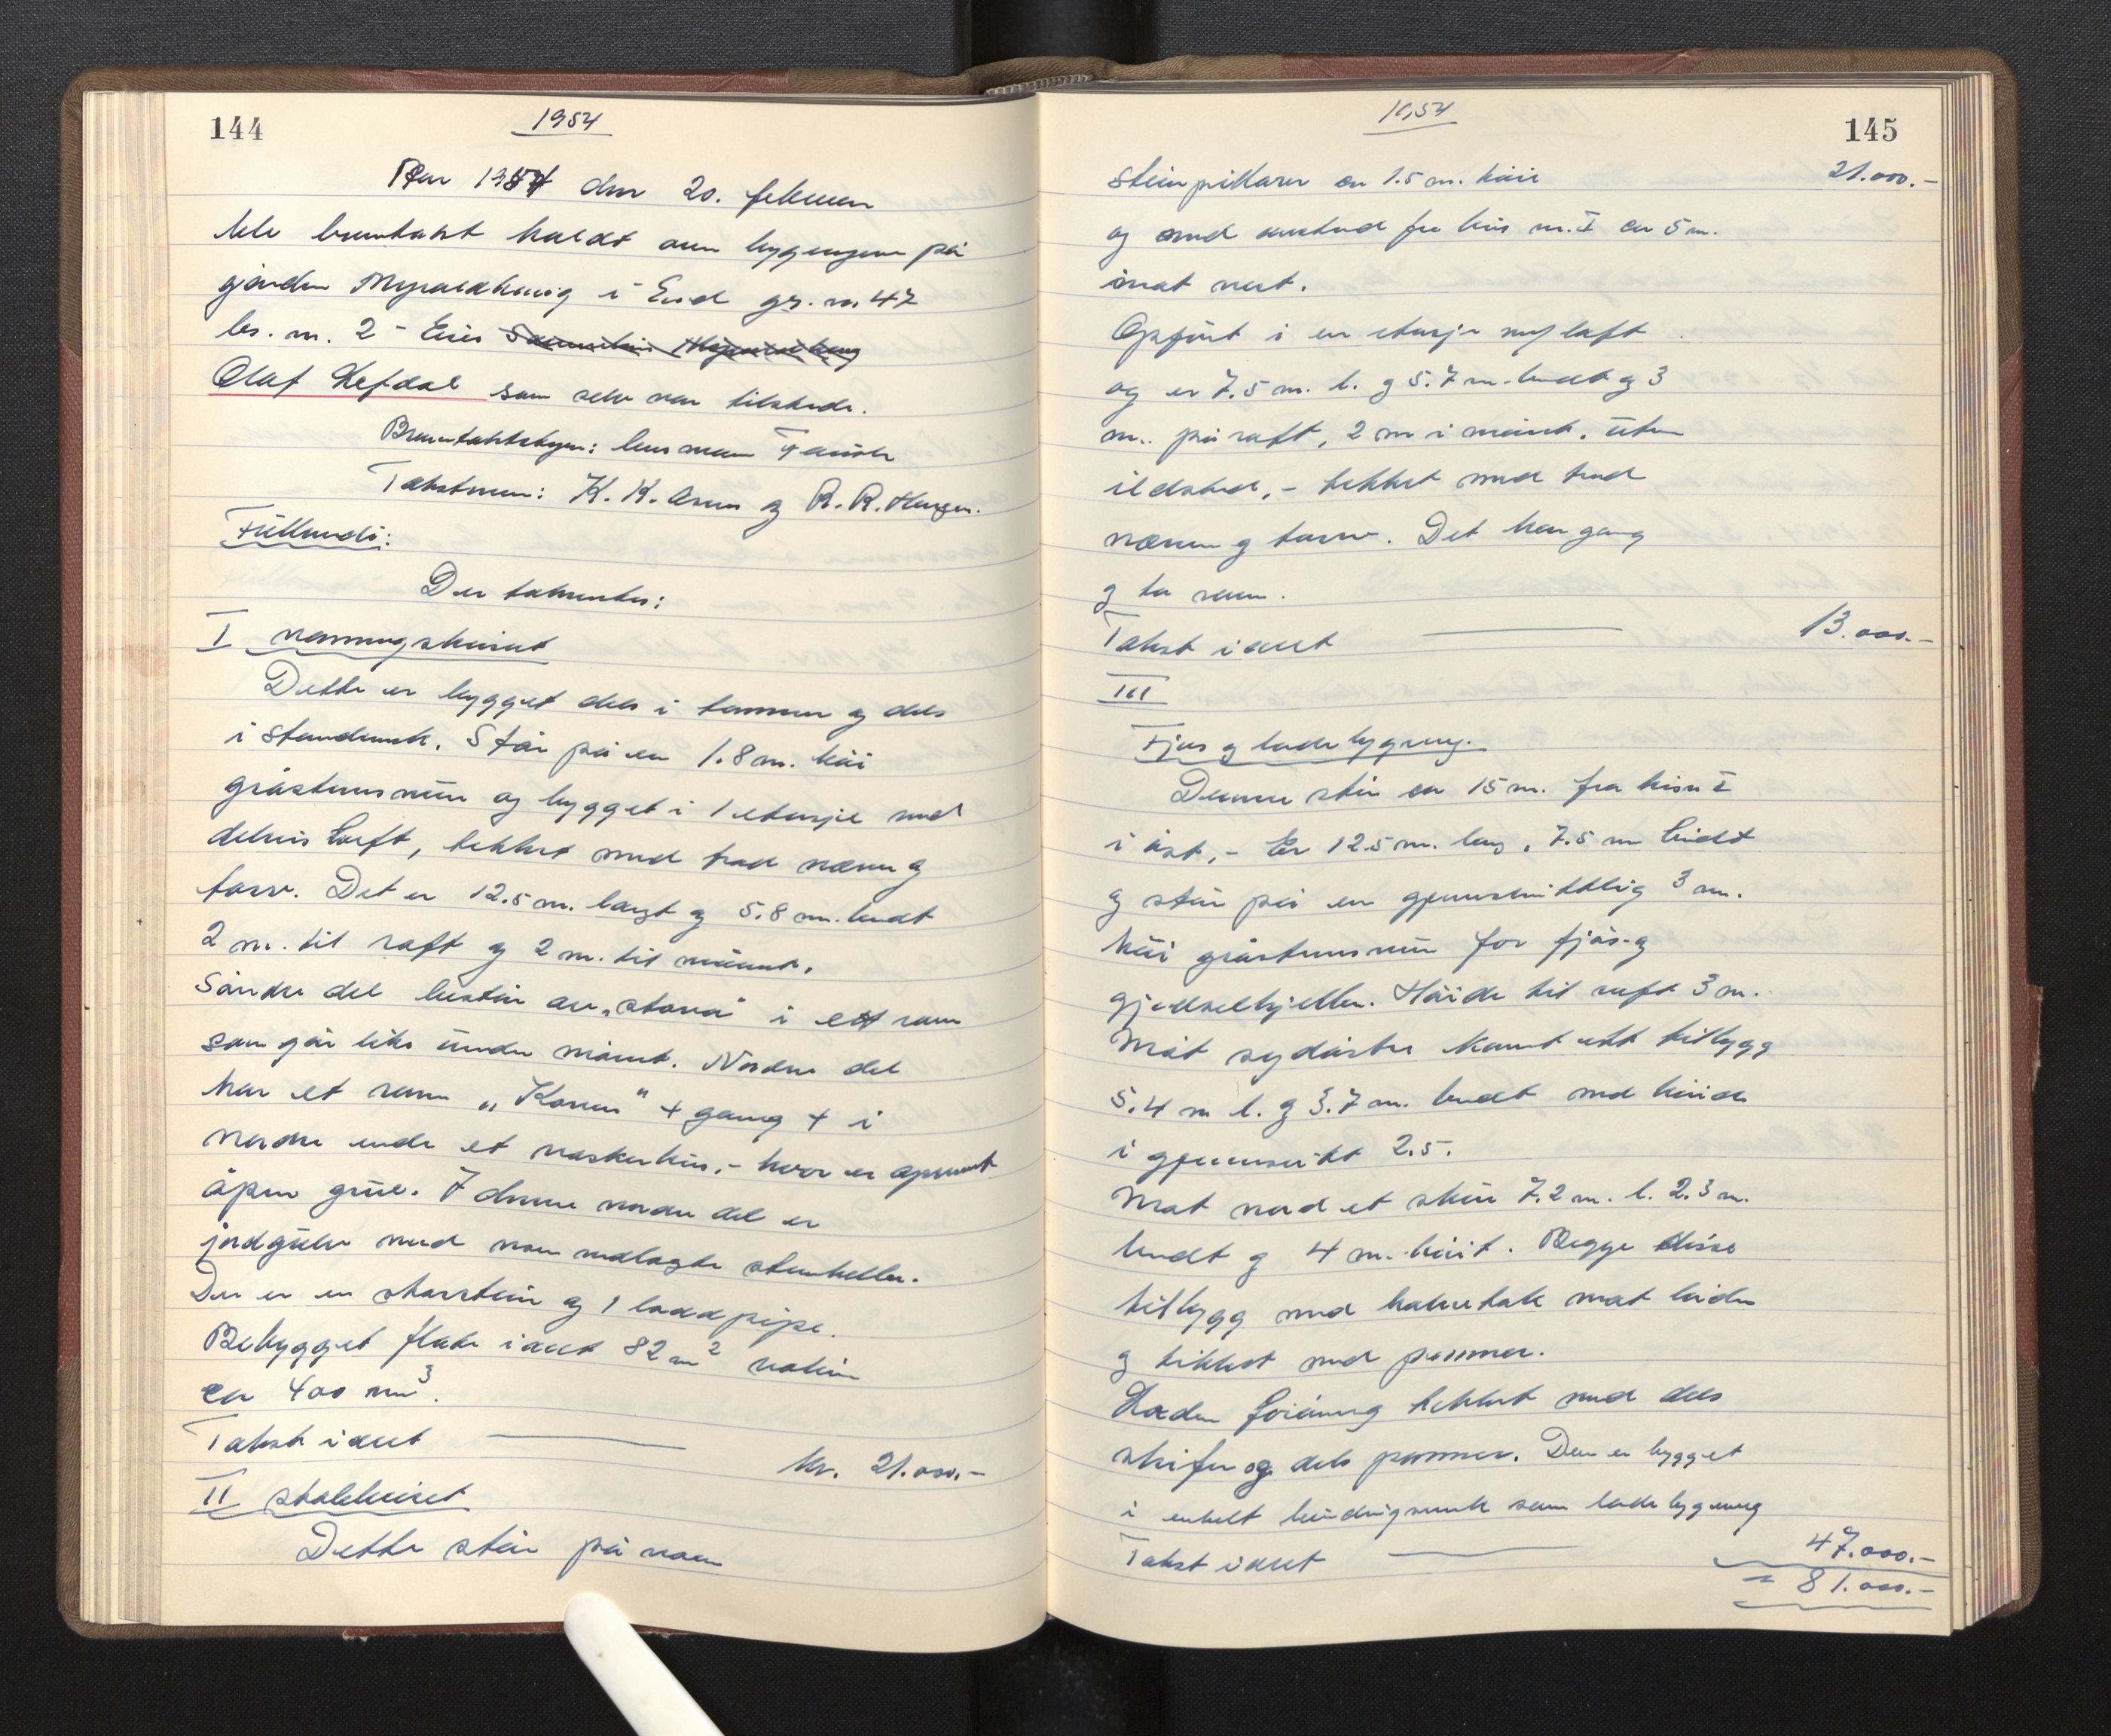 144
1954
Aar 1954 den 20. februar
ble branntakst holdt over bygningene på
gården Myraldhaug i Eid gr. nr 47
br. nr. 2 - Eier
Olaf Hefdal som selv var tilstede.
Branntakstbestyrer: lensmann
Takstmenn: K. K. Aaren og R. R. Haugen.
Fullmakt:
Der takserertes:
I vanningshuset
Dette er bygget dels i tømmer og dels
i standverk. Står på en 1.8 m. høi
gråstensmur og bygget i 1 etasje med
delvis loft, tekket med trod næver og
torv. Det er 12.5 m. langt og 5.8 m. bredt
2 m. til raft og 2 m. til mønet.
Søndre del består av "stova" i ett rom
som går like under mønet. Nordre del
har et rom "Koven" + gang + i
nordre ende et vaskerhus, - hvor er
åpen grue. I denne nordre del er
jordgulv med noen nedlagte stenheller.
Der er en skorstein og 1 lodd pipe.
Bebygget flate i alt 82 m² volum
ca 400 m³.
Takst i alt kr. 21.000.-
II stolehuset
Dette står på noen
1954
145
steinpillarer ca 1.5 m. høie 21.000.-
og med avstand fra hus nr. I ca 5 m.
imot vest.
Opført i en etasje m/ loft
og er 7.5 m. l. og 5.7 m. bredt og 3
m. på raft, 2 m i mønet, uten
ildsted, - tekket med trod
næver og torv. Det har gang
og to rom.
Takst i alt 13.000.-
III
Fjøs og ladebygning.
Denne står ca 15 m. fra hus I
i øst, - Er 12.5 m. lang, 7.5 m bredt
og står på en gjennsnittlig 3 m.
høi gråstensmur for fjøs- og
gjødselkjeller. Høide til raft 3 m.
Mot sydøstre kant ett tilbygg
5.4 m l. og 3.7 m. bredt med høide
i gjennsnitt 2.5.
Mot nord et skur 7.2 m. l. 2.3 m.
bredt og 4 m. høit. Begge disse
tilbygg med halvetak mot laden
og tekket med panner.
Laden forøvrig tekket med dels
skifer og dels panner. Den er bygget
i enkelt bindingsverk som ladebygning
Takst i alt 47.000.-
= 81.000.-